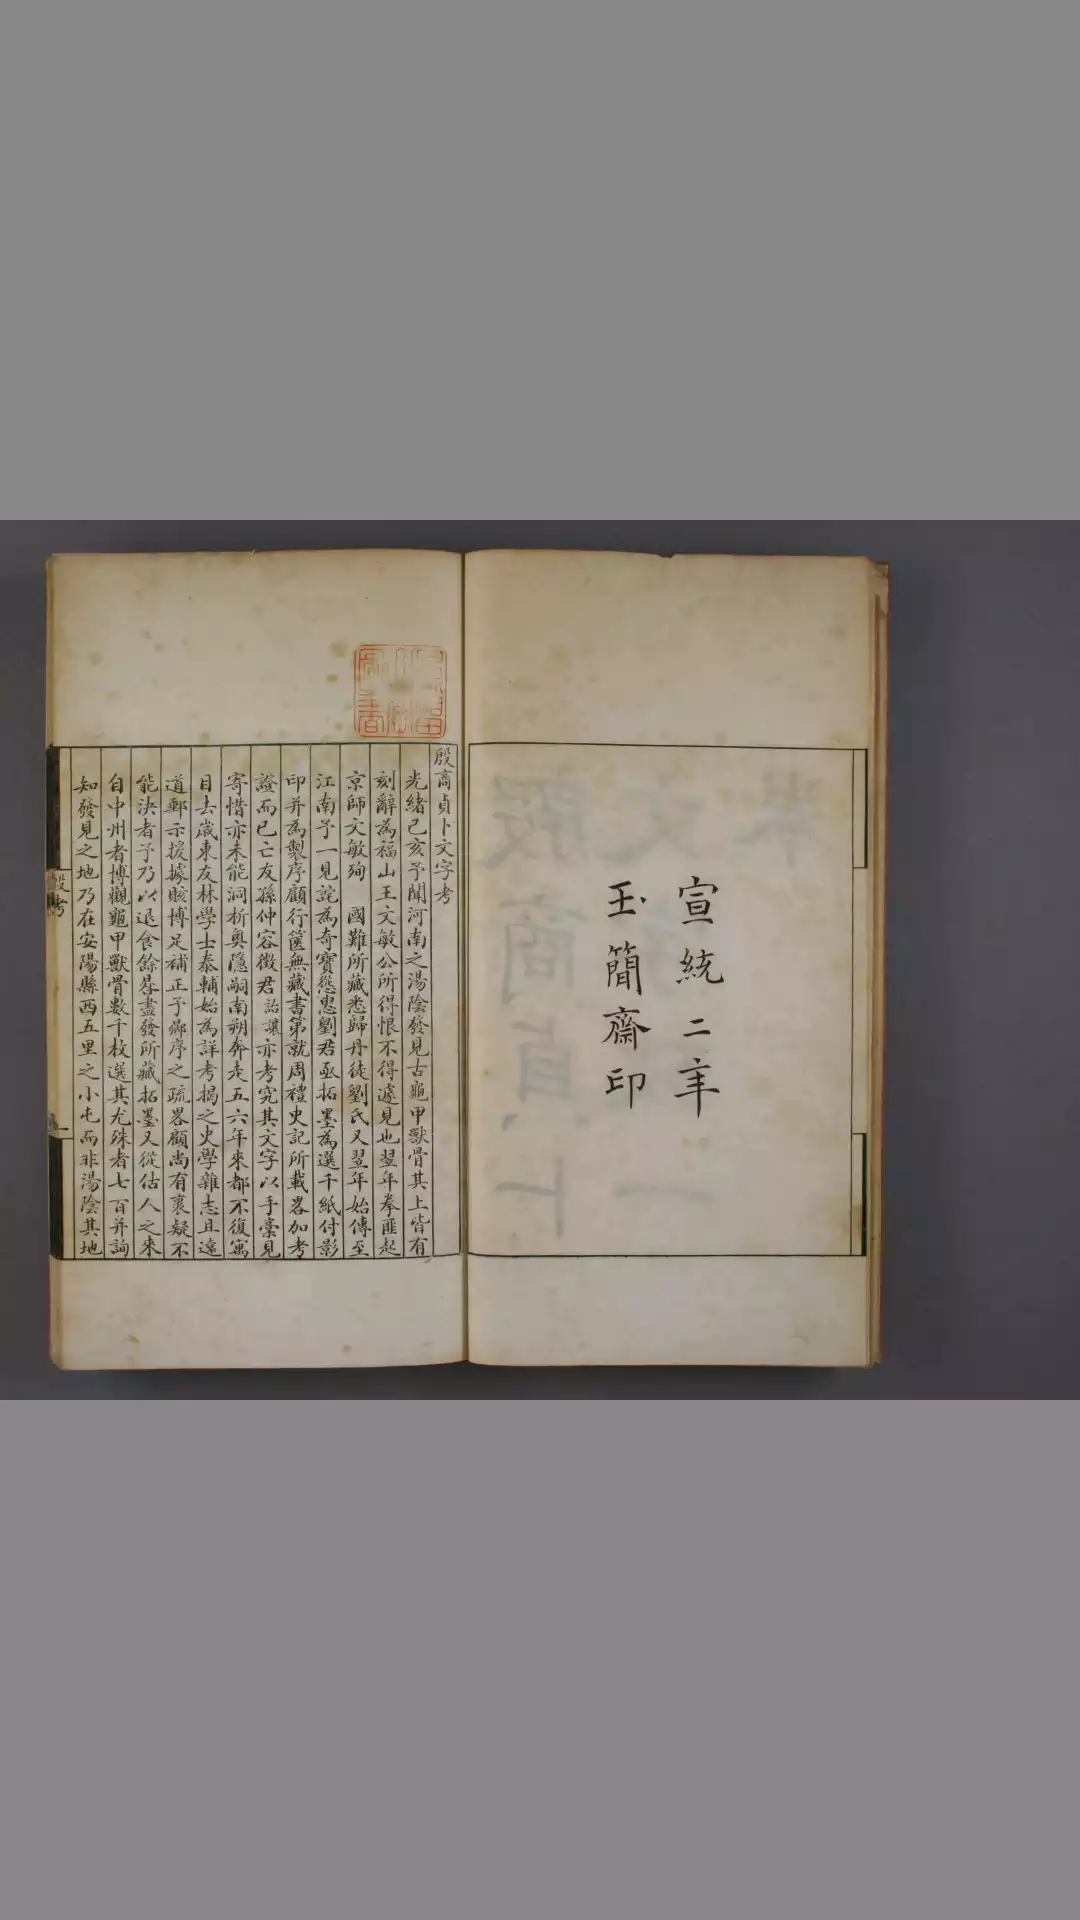 宣統二年
玉簡齋印
殷商貞卜文字考
光緒己亥予聞河南之湯陰發見古龜甲獸骨其上皆有
刻辭為福山王文敏公所得恨不得遽見也翌年拳匪起
京師文敏殉 國難所藏悉歸丹徒劉氏又翌年始傳至
江南予一見詫為奇寶慫恿劉君亟拓墨為選千紙付影
印并為製序顧行篋無藏書第就周禮史記所載畧加考
證而已亡友孫仲容徵君詒讓亦考究其文字以手稾見
寄惜亦未能洞析奧隱嗣南朔奔走五六年來都不復寓
目去歲東友林學士泰輔始為詳考揭之史學雜志且遠
道郵示援據賅博足補正予鄉序之疏畧顧尚有裹疑不
能決者予乃以退食餘晷盡發所藏拓墨又從估人之來
自中州者博觀龜甲獸骨數千枚選其尤殊者七百并詢
知發見之地乃在安陽縣西五里之小屯而非湯陰其地
殷考
一